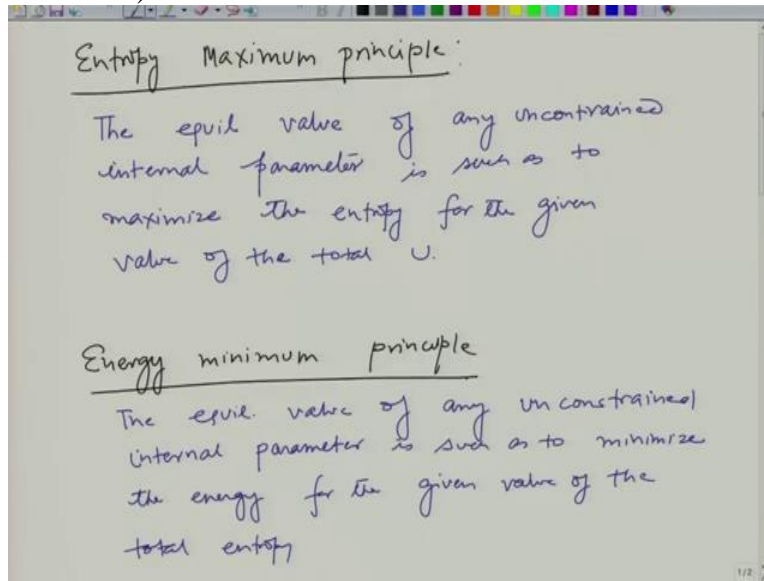 Entropy Maximum principle:
The equil value of any uncontrained
internal parameter is such as to
maximize the entropy for the given
value of the total U.
Energy minimum principle
The equil. value of any unconstrained
internal parameter is such as to minimize
the energy for the given value of the
total entropy
1/2